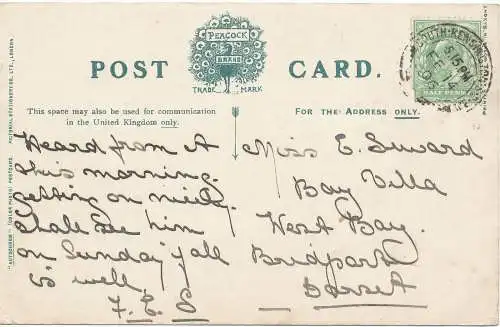 PEACOCK
BRAND
TRADE MARK
POST CARD.
This space may also be used for communication
in the United Kingdom only.
FOR THE ADDRESS ONLY.
Heard from A
this morning.
getting on nicely
shall see him
on Sunday if all
is well.
F.E.S
Miss E. Seward
Bay Villa
West Bay.
Bridport
Dorset
SOUTH KENSINGTON
5.15 PM
HALF PENNY
"AUTOCHROM" (COLOUR PHOTO) POSTCARD.
PICTORIAL STATIONERY CO., LTD., LONDON.